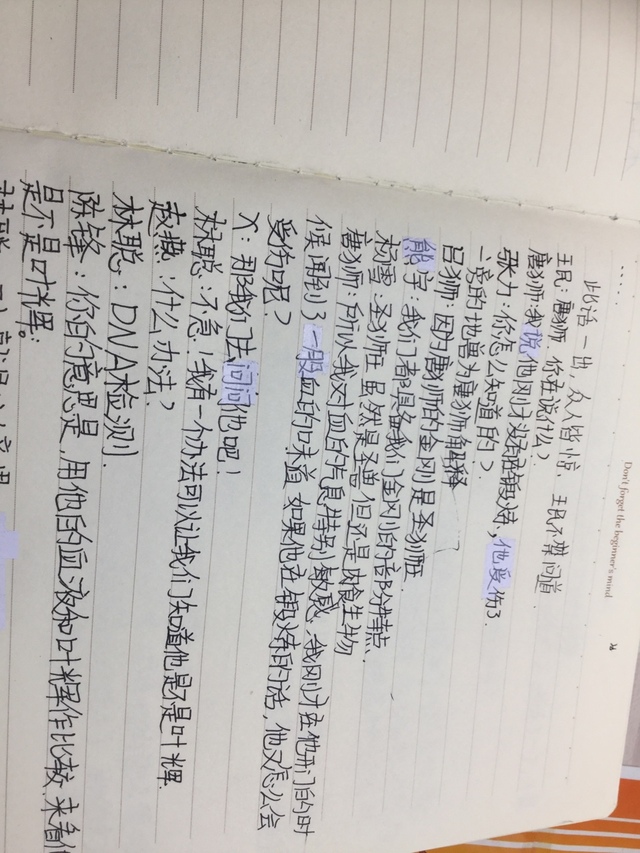 Don't forget the beginner's mind
此话一出，众人皆惊，王民不禁问道
王民：唐狮，你在说什么？
唐狮：我说他刚才没在锻炼，他受伤了.
张力：你怎么知道的？
一旁的地兽为唐狮解释
吕狮：因为唐狮的金刚是圣狮王.
熊宇：我们都具备我们金刚的部分特点.
杨雪：圣狮王虽然是圣兽但还是肉食生物
唐狮：所以我对血的气息特别敏感，我刚才在他开门的时
候闻到了一股血的味道如果他在锻炼的话，他又怎么会
受伤呢？
X：那我们去问问他吧！
林聪：不急！我有一个办法可以让我们知道他是不是叶辉.
赵薇：什么办法？
林聪：DNA检测.
陈锋：你的意思是，用他的血液和叶辉作比较，来看他
是不是叶辉。